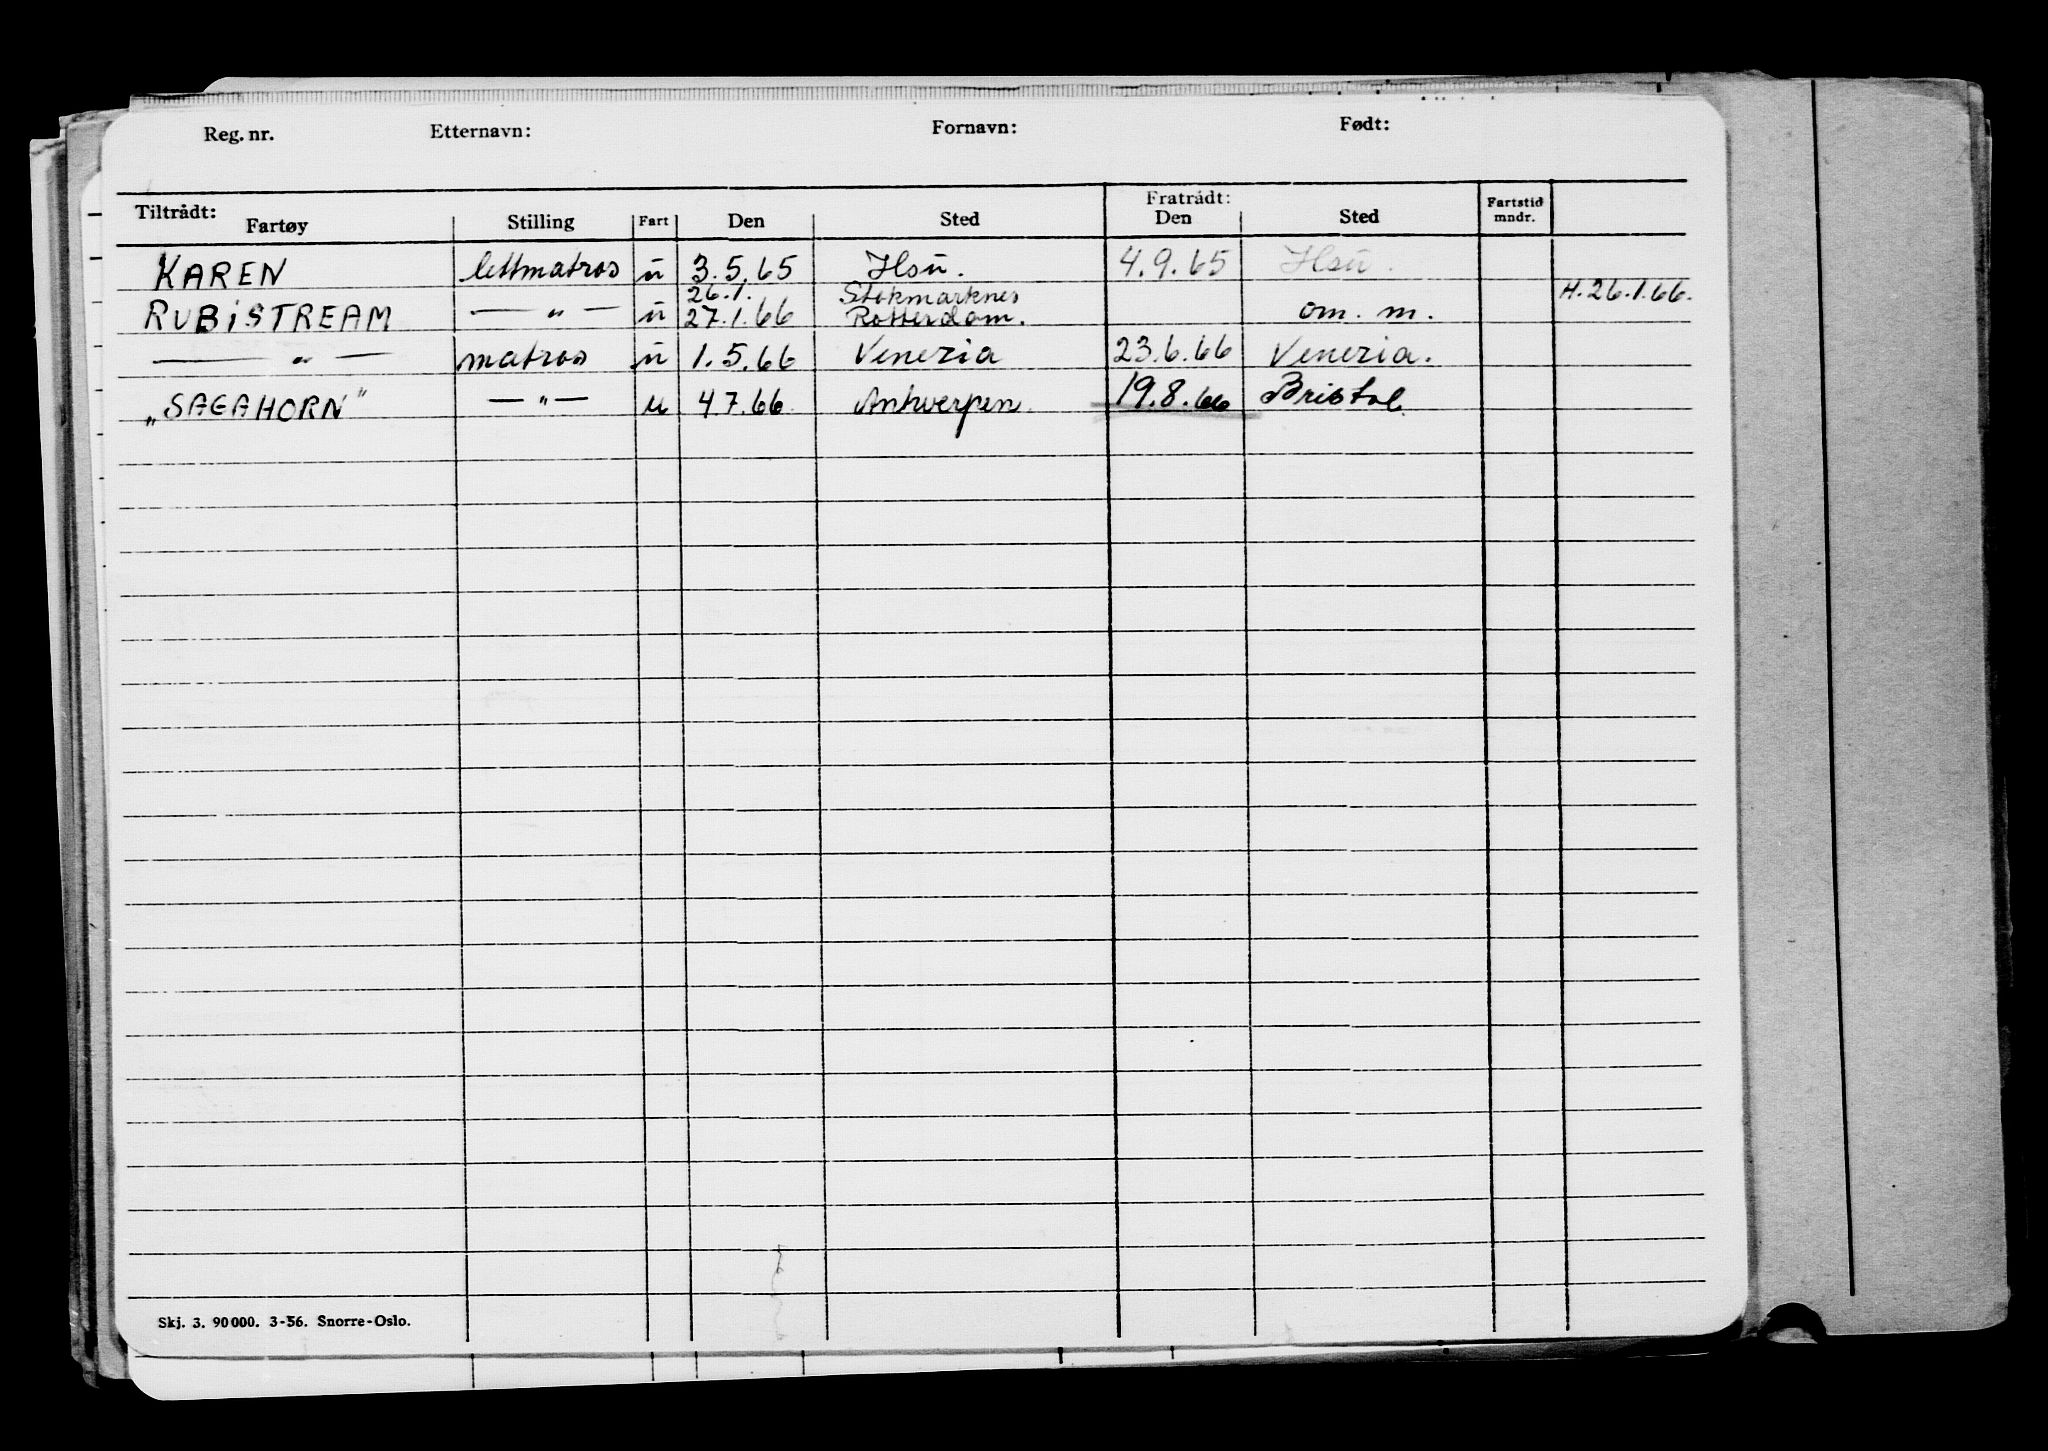 Reg. nr. Etternavn: Fornavn: Født:
Tiltrådt: Fratrådt:
Fartøy Stilling Fart Den Sted Den Sted Fartstid mndr.
KAREN lettmatros ū 3.5.65 Hsū. 4.9.65 Hsū.
26.1. Stokmarknes H.26.1.66.
RUBiSTREAM — " — ū 27.1.66 Rotterdam. om. m.
— " — matros ū 1.5.66 Venezia 23.6.66 Venezia.
"SAGAHORN" — " — u 4 7.66 Antwerpen. 19.8.66 Bristol.
Skj. 3. 90 000. 3-56. Snorre-Oslo.